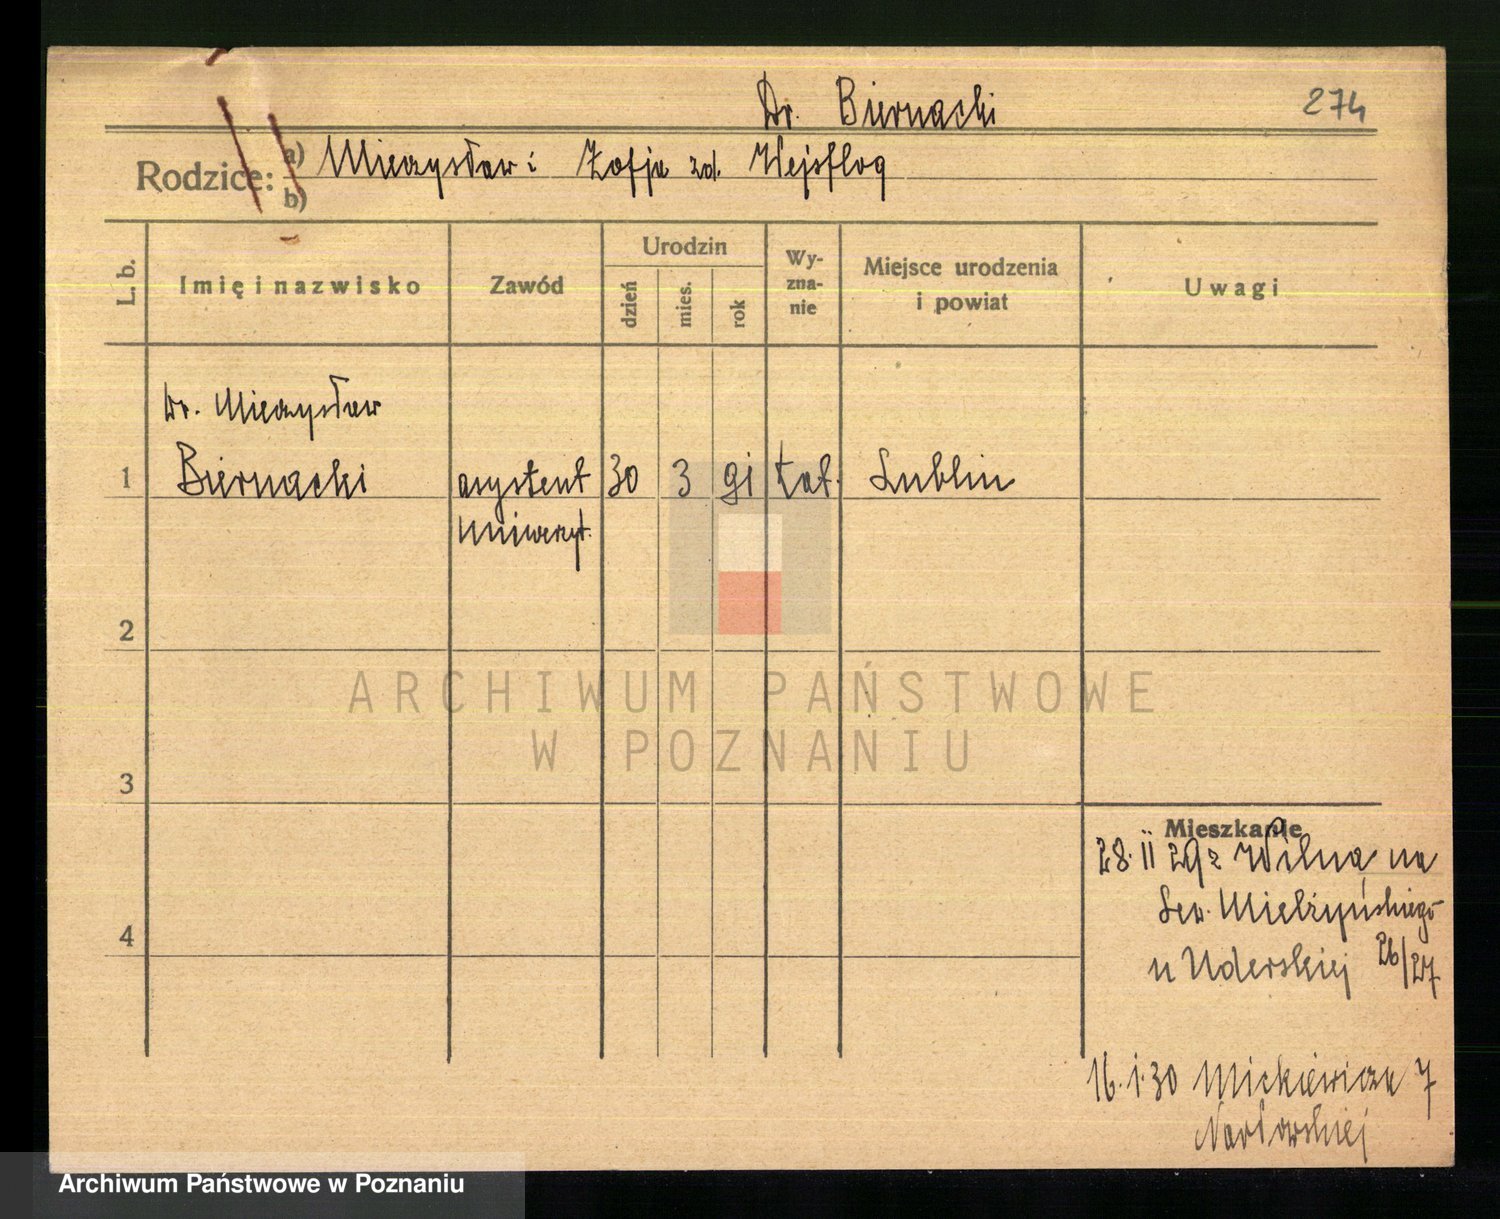 Dr. Biernacki
274
Rodzice: a) Mieczysław i Zofja zd. Wejsflog
b)
L. b.
Imię i nazwisko
Zawód
Urodzin
dzień
mies.
rok
Wy-
zna-
nie
Miejsce urodzenia
i powiat
Uwagi
Dr. Mieczysław
1 Biernacki asystent 30 3 91 kat. Lublin
Uniwerzyt.
2
3
4
Mieszkanie
28. II 29 z Wilna na
Sew. Mielżyńskiego
u Uderskiej 26/27
16. 1. 30 Mickiewicza 7
ARCHIWUM PAŃSTWOWE
W POZNANIU
Archiwum Państwowe w Poznaniu